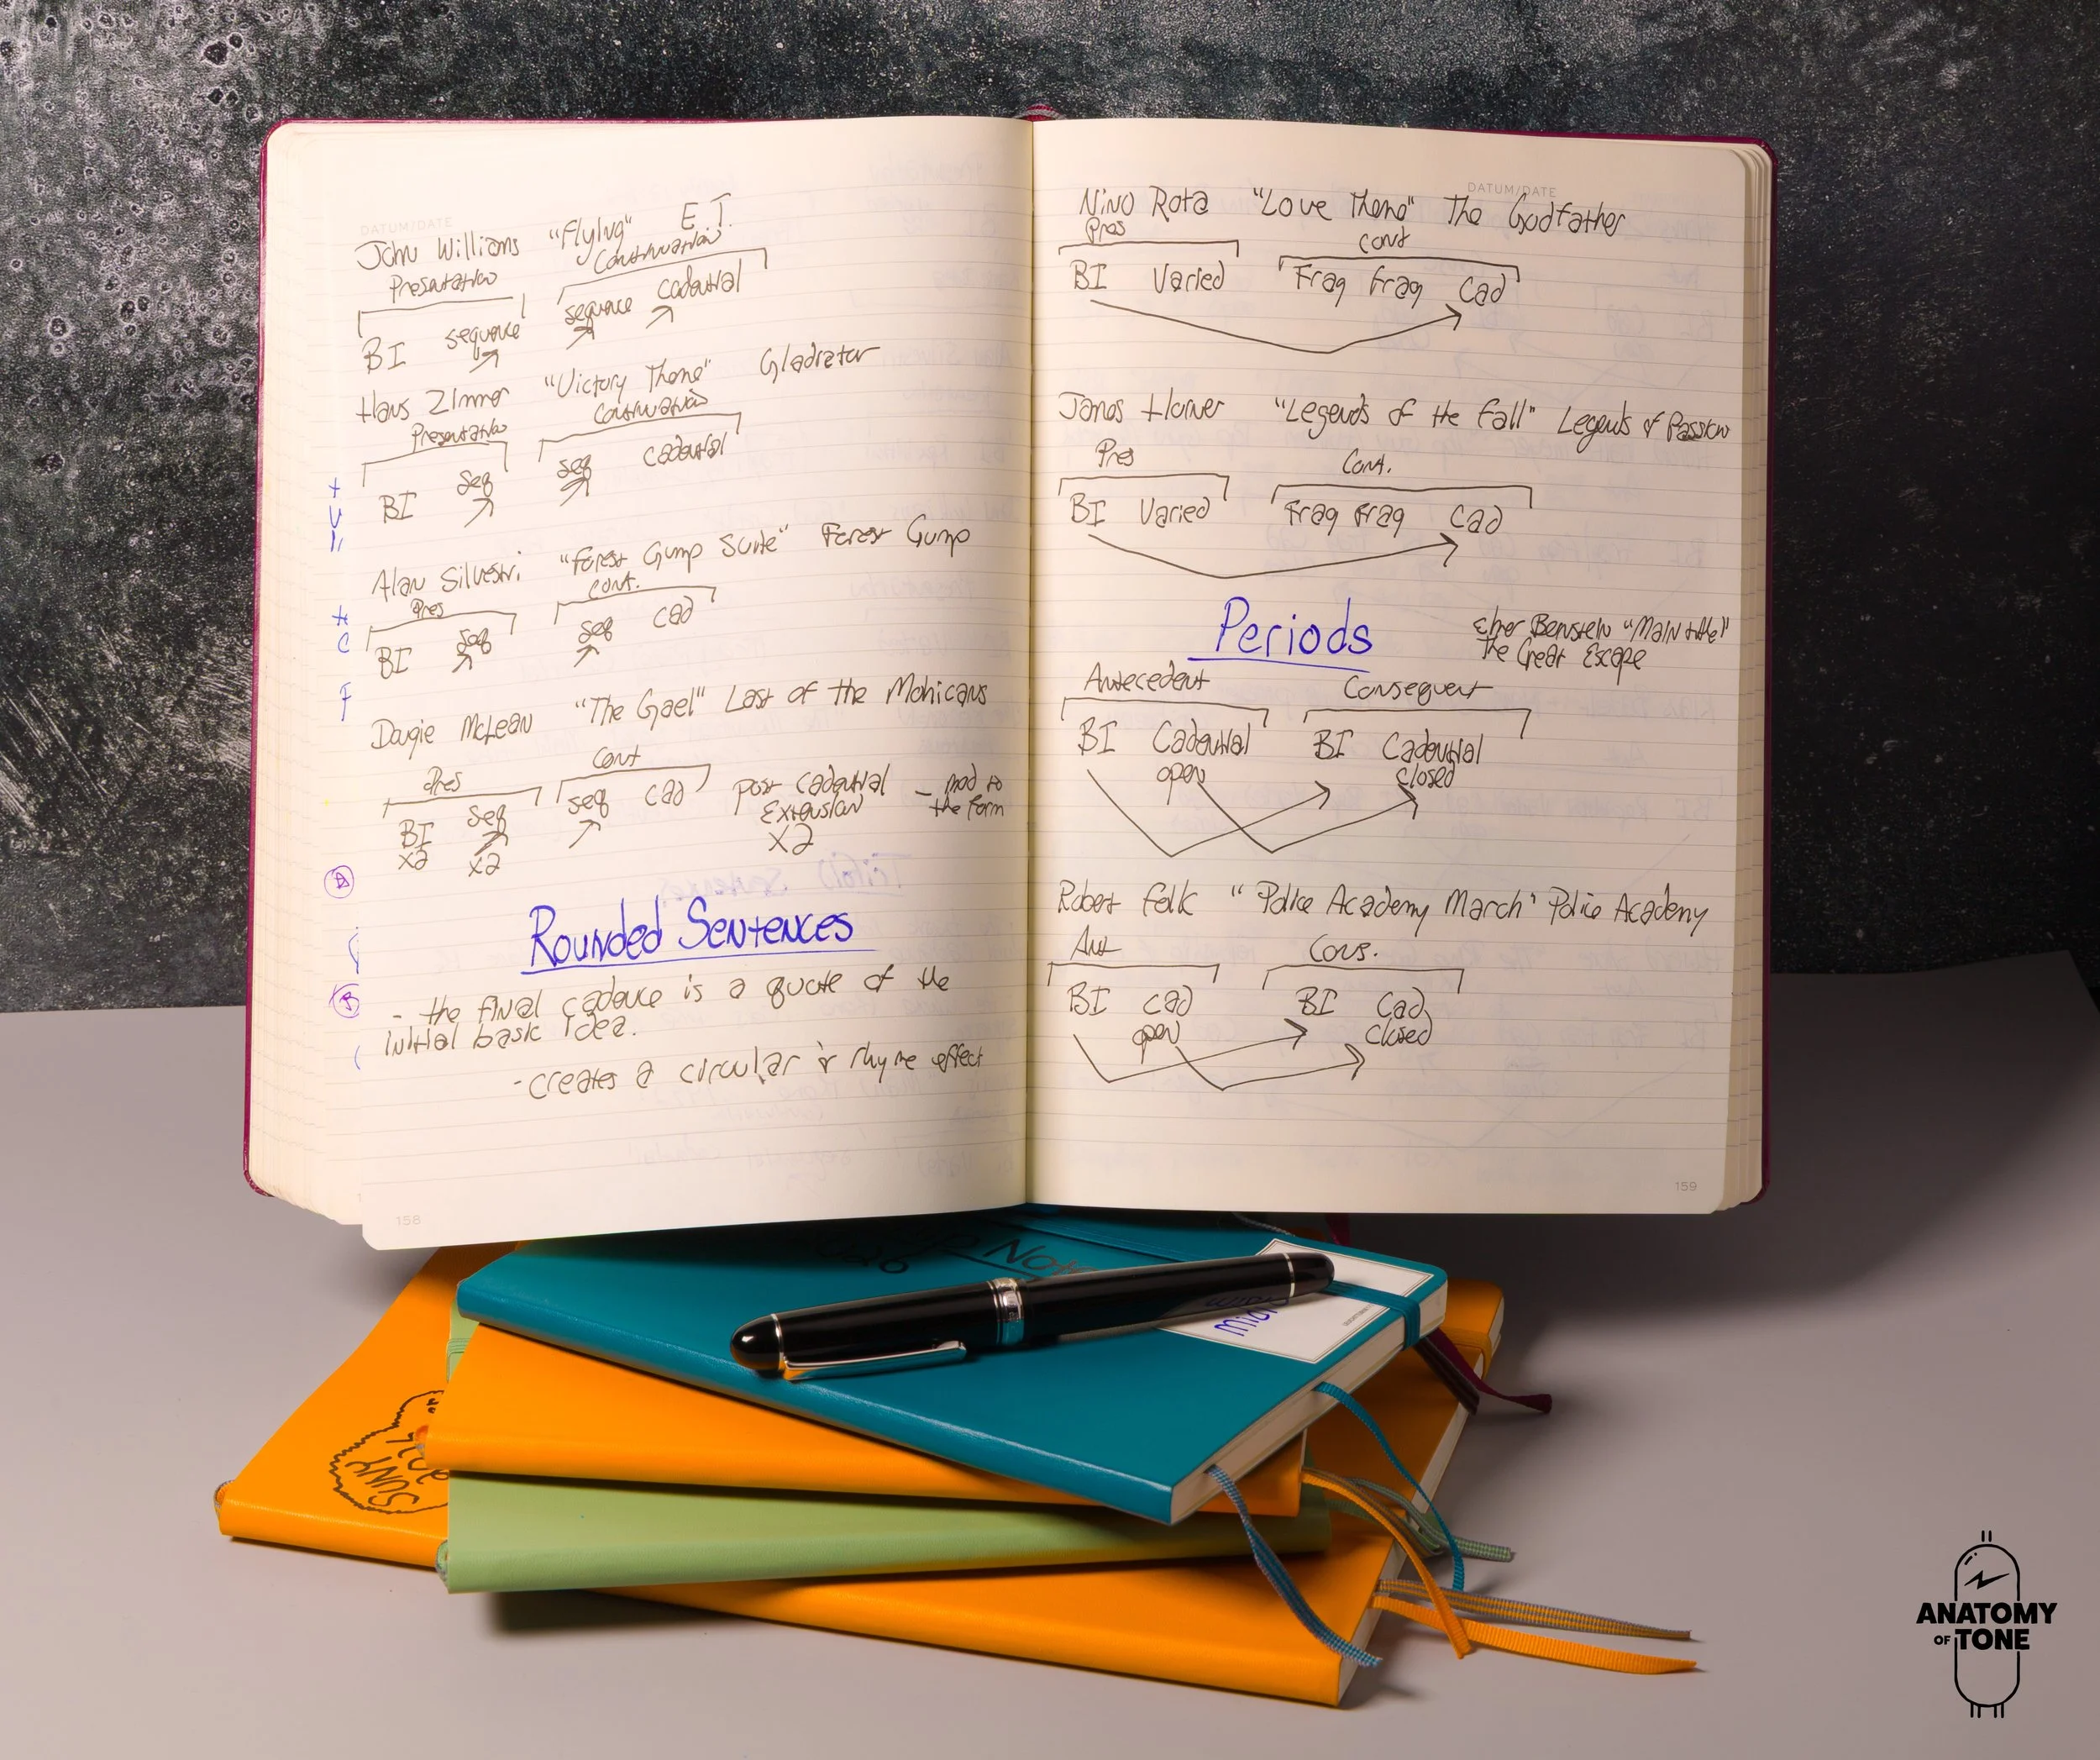 DATUM/DATE
John Williams "Flying" E.T.
Presentation Continuation
BI sequence sequence cadential
Hans Zimmer "Victory Theme" Gladiator
Presentation Continuation
BI seq seq cadential
Alan Silvestri "Forest Gump Suite" Forest Gump
Pres cont.
BI seq seq cad
Dougie McLean "The Gael" Last of the Mohicans
Pres Cont
BI Seq seq cad post cadential - mod to
x2 x2 Extension the form
x2
Rounded Sentences
- the final cadence is a quote of the
initial basic idea.
- creates a circular or rhyme effect
158
DATUM/DATE
Nino Rota "Love Theme" The Godfather
Pres cont
BI Varied Frag Frag Cad
James Horner "Legends of the Fall" Legends of Passion
Pres Cont.
BI Varied Frag Frag Cad
Periods
Elmer Bernstein "Main title"
The Great Escape
Antecedent Consequent
BI Cadential BI Cadential
open closed
Robert Folk "Police Academy March" Police Academy
Ant Cons.
BI cad BI Cad
open closed
159
A
B
SUNY
ANATOMY
OF TONE